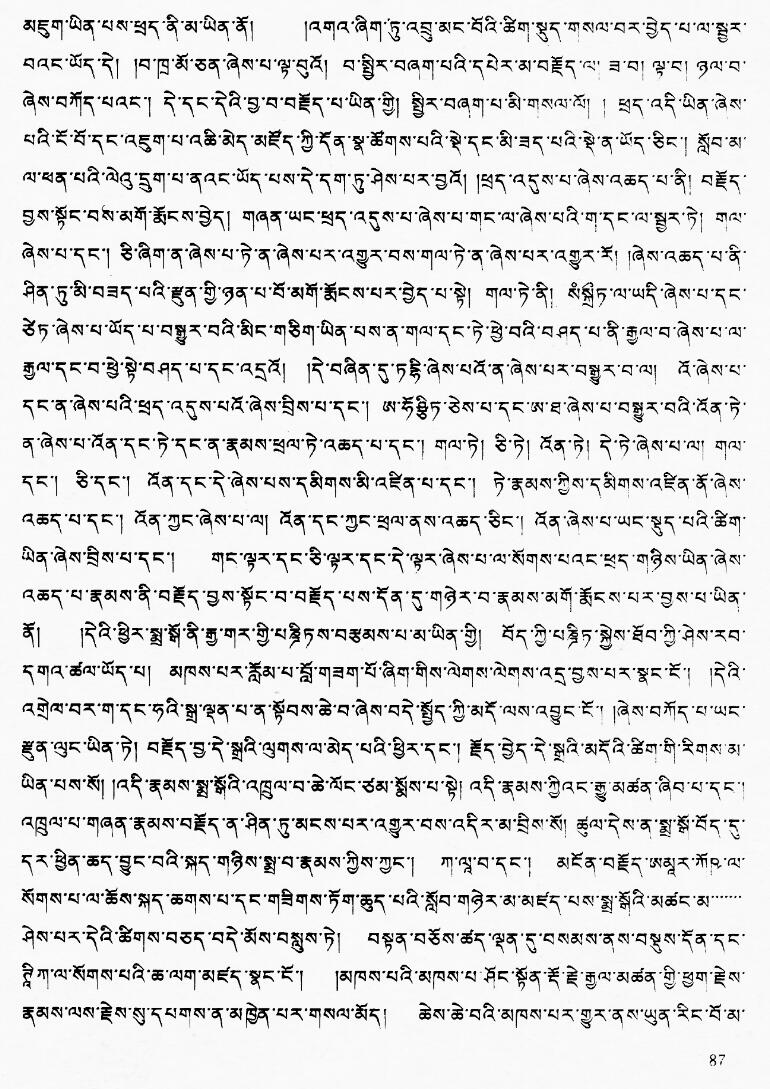 མཇུག་ཡིན་པས་ཕྲད་ནི་མ་ཡིན་ནོ། །འགའ་ཞིག་ཏུ་འབྲུ་མང་པོའི་ཚིག་སྡུད་གསལ་བར་བྱེད་པ་ལ་སྦྱར་
བའང་ཡོད་དེ། །བ་ཁྲ་མོ་ཅན་ཞེས་པ་ལྟ་བུའོ། བ་སྤྱིར་བཞག་པའི་དཔེར་མ་བརྗོད་ལ། ཟ་བ། ལྟ་བ། ཉལ་བ་
ཞེས་བཀོད་པའང་། དེ་དང་དེའི་བྱ་བ་བརྗོད་པ་ཡིན་གྱི། སྤྱིར་བཞག་པ་མི་གསལ་ལོ། ། ཕྲད་འདི་ཡིན་ཞེས་
པའི་ངོ་བོ་དང་འཇུག་པ་འཆི་མེད་མཛོད་ཀྱི་དོན་སྣ་ཚོགས་པའི་སྡེ་དང་མི་ཟད་པའི་སྡེ་ན་ཡོད་ཅིང་། སློབ་མ་
ལ་ཕན་པའི་ལེའུ་དྲུག་པ་ནའང་ཡོད་པས་དེ་དག་ཏུ་ཤེས་པར་བྱའོ། །ཕྲད་འདུས་པ་ཞེས་འཆད་པ་ནི། བརྗོད་
བྱས་སྟོང་བས་མགོ་རྨོངས་བྱེད། གཞན་ཡང་ཕྲད་འདུས་པ་ཞེས་པ་གང་ལ་ཞེས་པའི་ག་དང་ལ་སྦྱར་ཏེ། གལ་
ཞེས་པ་དང་། ཅི་ཞིག་ན་ཞེས་པ་ཏེ་ན་ཞེས་པར་འགྱུར་བས་གལ་ཏེ་ན་ཞེས་པར་འགྱུར་རོ། །ཞེས་འཆད་པ་ནི་
ཤིན་ཏུ་མི་བཟད་པའི་རྫུན་གྱི་ཉན་པ་པོ་མགོ་རྨོངས་པར་བྱེད་པ་སྟེ། གལ་ཏེ་ནི། སཾསྐྲྀཏ་ལ་ཡདི་ཞེས་པ་དང་
ཙེཏ་ཞེས་པ་ཡོད་པ་བསྒྱུར་བའི་མིང་གཅིག་ཡིན་པས་ན་གལ་དང་ཏེ་ཕྱེ་བའི་བཤད་པ་ནི་རྒྱལ་བ་ཞེས་པ་ལ་
རྒྱལ་དང་བ་ཕྱེ་སྟེ་བཤད་པ་དང་འདྲའོ། །དེ་བཞིན་དུ་ཏརྷི་ཞེས་པའོ་ན་ཞེས་པར་བསྒྱུར་བ་ལ། འོ་ཞེས་པ་
དང་ན་ཞེས་པའི་ཕྲད་འདུས་པའོ་ཞེས་བྲིས་པ་དང་། ཨ་ཧོསྭིཏ་ཅེས་པ་དང་ཨ་ཐ་ཞེས་པ་བསྒྱུར་བའི་འོན་ཏེ་
ན་ཞེས་པ་འོན་དང་ཏེ་དང་ན་རྣམས་ཕྲལ་ཏེ་འཆད་པ་དང་། གལ་ཏེ། ཅི་ཏེ། འོན་ཏེ། དེ་ཏེ་ཞེས་པ་ལ། གལ་
དང་། ཅི་དང་། འོན་དང་དེ་ཞེས་པས་དམིགས་མི་འཛིན་པ་དང་། ཏེ་རྣམས་ཀྱིས་དམིགས་འཛིན་ནོ་ཞེས་
འཆད་པ་དང་། འོན་ཀྱང་ཞེས་པ་ལ། འོན་དང་ཀྱང་ཕྲལ་ནས་འཆད་ཅིང་། འོན་ཞེས་པ་ཡང་སྡུད་པའི་ཚིག་
ཡིན་ཞེས་བྲིས་པ་དང་། གང་ལྟར་དང་ཅི་ལྟར་དང་དེ་ལྟར་ཞེས་པ་ལ་སོགས་པའང་ཕྲད་གཉིས་ཡིན་ཞེས་
འཆད་པ་རྣམས་ནི་བརྗོད་བྱས་སྟོང་བ་བརྗོད་པས་དོན་དུ་གཉེར་བ་རྣམས་མགོ་རྨོངས་པར་བྱས་པ་ཡིན་
ནོ། །དེའི་ཕྱིར་སྨྲ་སྒོ་ནི་རྒྱ་གར་གྱི་པཎྜིཏས་བརྩམས་པ་མ་ཡིན་གྱི། བོད་ཀྱི་པཎྜིཏ་སྐྱེས་ཐོབ་ཀྱི་ཤེས་རབ་
དགའ་ཚལ་ཡོད་པ། མཁས་པར་རློམ་པ་བློ་གཟག་པོ་ཞིག་གིས་ལེགས་ལེགས་འདྲ་བྱས་པར་སྣང་ངོ་། །དེའི་
འགྲེལ་བར་ག་དང་ཧའི་སྒྲ་ལྡན་པ་ན་སྟོབས་ཆེ་བ་ཞེས་བདེ་སྤྱོད་ཀྱི་མདོ་ལས་འབྱུང་ངོ་། །ཞེས་བཀོད་པ་ཡང་
རྫུན་ལུང་ཡིན་ཏེ། བརྗོད་བྱ་དེ་སྒྲའི་ལུགས་ལ་མེད་པའི་ཕྱིར་དང་། རྗོད་བྱེད་དེ་སྒྲའི་མདོའི་ཚིག་གི་རིགས་མ་
ཡིན་པས་སོ། །འདི་རྣམས་སྨྲ་སྒོའི་འཁྲུལ་བ་ཆེ་ལོང་ཙམ་སྨོས་པ་སྟེ། འདི་རྣམས་ཀྱིའང་རྒྱུ་མཚན་ཞིབ་པ་དང་།
འཁྲུལ་པ་གཞན་རྣམས་བརྗོད་ན་ཤིན་ཏུ་མངས་པར་འགྱུར་བས་འདིར་མ་བྲིས་སོ། ཚུལ་དེས་ན་སྨྲ་སྒོ་བོད་དུ་
དར་ཕྱིན་ཆད་བྱུང་བའི་སྐད་གཉིས་སྨྲ་བ་རྣམས་ཀྱིས་ཀྱང་། ཀ་ལཱ་བ་དང་། མངོན་བརྗོད་ཨམཱར་ཀོཥ་ལ་
སོགས་པ་ལ་ཆོས་སྐད་ཆགས་པ་དང་གཟིགས་ཏོག་ཆུད་པའི་སློབ་གཉེར་མ་མཛད་པས་སྨྲ་སྒོའི་མཚང་མ་……
ཤེས་པར་དེའི་ཚིགས་བཅད་བདེ་མོས་བསླུས་ཏེ། བསྟན་བཅོས་ཚད་ལྡན་དུ་བསམས་ནས་བསྡུས་དོན་དང་
ཊཱིཀ་ལ་སོགས་པའི་ཆ་ལག་མཛད་སྣང་ངོ་། །མཁས་པའི་མཁས་པ་ཤོང་སྟོན་རྡོ་རྗེ་རྒྱལ་མཚན་གྱི་ཕྱག་རྗེས་
རྣམས་ལས་རྗེས་སུ་དཔགས་ན་མཁྱེན་པར་གསལ་མོད། ཆེས་ཆེ་བའི་མཁས་པར་གྱུར་ནས་ཡུན་རིང་པོ་མ་
87